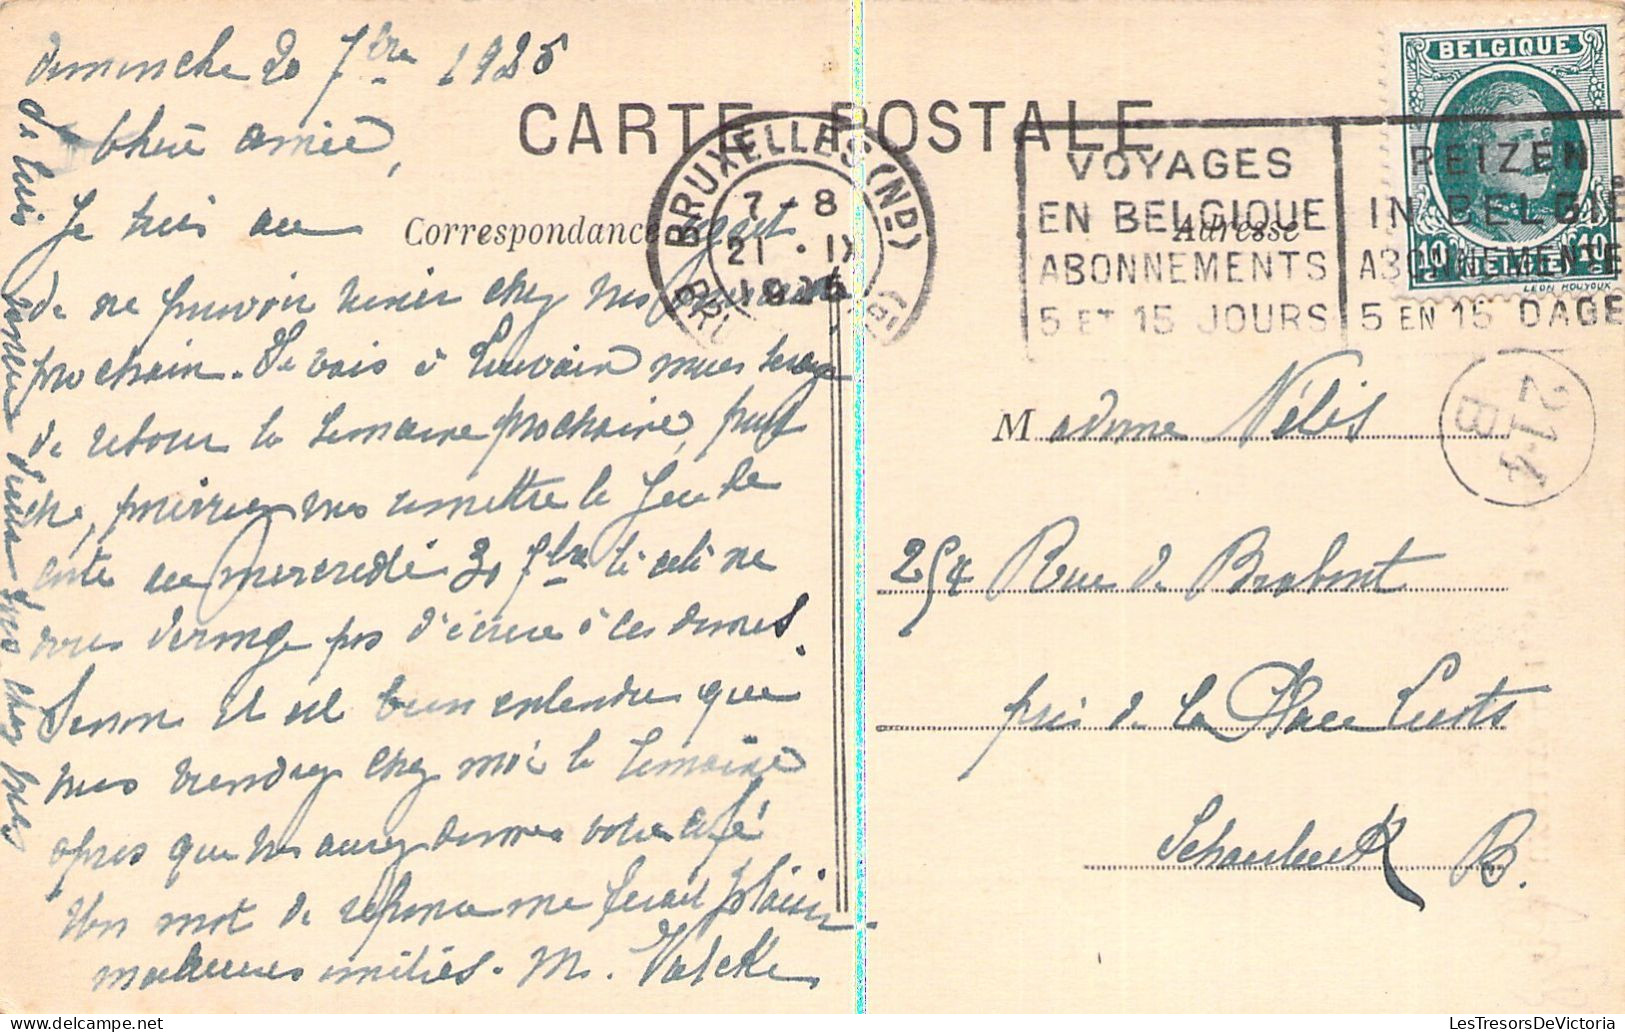 dimanche 20 7bre 1925
Chère amie,
Je suis au regret
de ne pouvoir venir chez vous
prochain. Je vais à Louvain mais serai
de retour la semaine prochaine,
pourriez vous remettre le jeu de
carte au mercredi 30 7bre si cela ne
vous dérange pas d'écrire à ces dames.
Sinon il est bien entendu que
vous viendrez chez moi la semaine
après que vous aurez donné votre café
Un mot de réponse me ferait plaisir
meilleures amitiés. M. Valcke
Je suis venue deux fois chez vous
CARTE POSTALE
Correspondance
Adresse
BRUXELLES (ND)
7 - 8
21 · IX
1925
VOYAGES
EN BELGIQUE
ABONNEMENTS
5 ET 15 JOURS
REIZEN
IN BELGIE
ABONNEMENTE
5 EN 15 DAGE
BELGIQUE
10 c BELGIË 10 c
LEON HOUYOUX
214
B
Madame Nélis
254 Rue de Brabant
près de la Place Liedts
Schaerbeek B.
LesTresorsDeVictoria